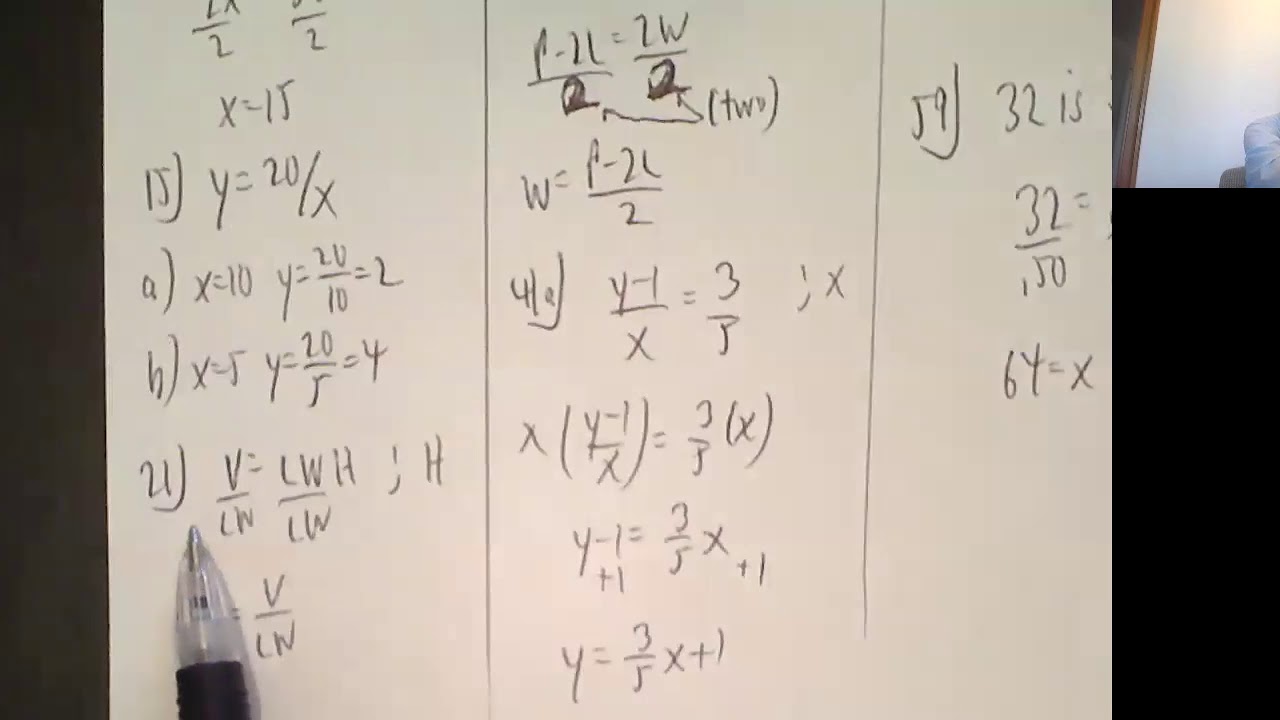 2x/2
x=15
15) y=20/x
a) x=10 y=20/10=2
b) x=5 y=20/5=4
21) V/LW = LWH/LW ; H
= V/LW
P-2L/2 = 2W/2
(two)
W= P-2L/2
41a) y-1/x = 3/5 ; x
x(y-1/x)= 3/5(x)
y-1= 3/5x
+1 +1
y= 3/5x+1
59) 32 is
32/.50 =
64=x